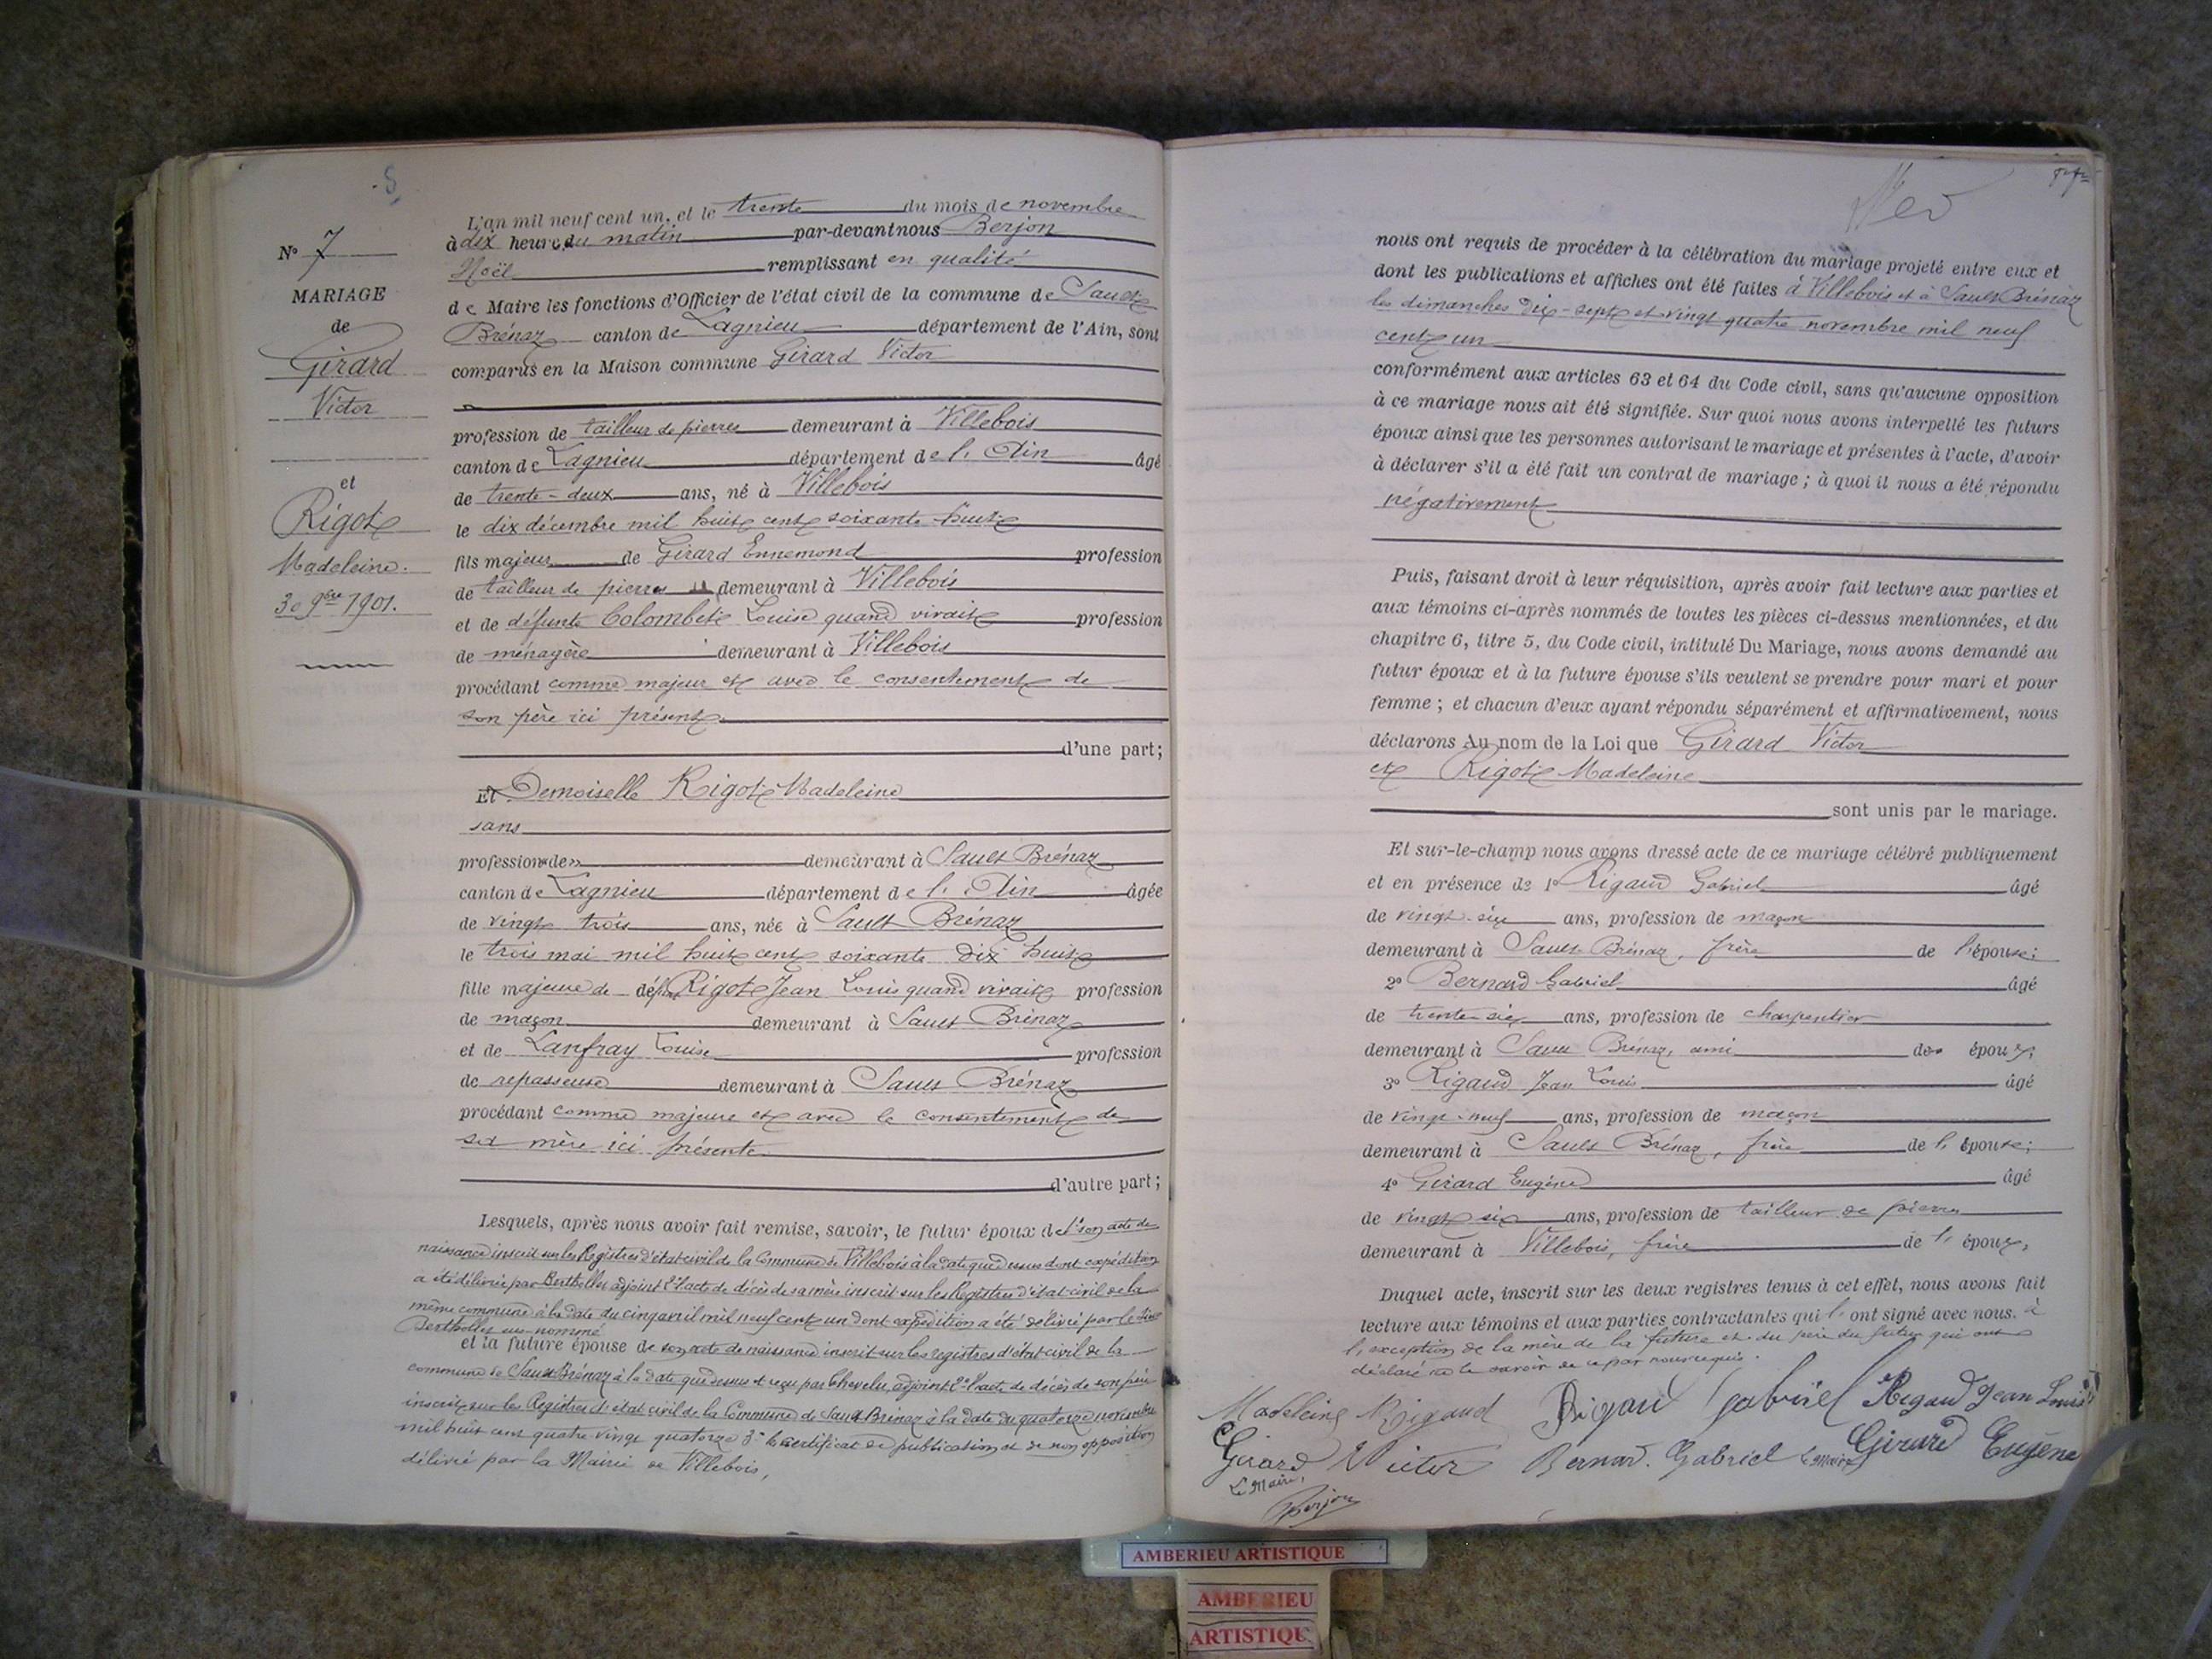 N° 7
MARIAGE
de
Girard
Victor
et
Rigot
Madeleine.
30 9bre 1901.
L'an mil neuf cent un, et le trente du mois de novembre
à dix heures du matin par-devant nous Berjon
Noël remplissant en qualité
de Maire les fonctions d'Officier de l'état civil de la commune de Sault
Brénaz canton de Lagnieu département de l'Ain, sont
comparus en la Maison commune Girard Victor
profession de tailleur de pierres demeurant à Villebois
canton de Lagnieu département de l'Ain âgé
de trente-deux ans, né à Villebois
le dix décembre mil huit cent soixante huit
fils majeur de Girard Ennemond profession
de tailleur de pierres demeurant à Villebois
et de défunte Colombet Louise quand vivait profession
de ménagère demeurant à Villebois
procédant comme majeur et avec le consentement de
son père ici présent
d'une part;
Et Demoiselle Rigot Madeleine
sans
profession de demeurant à Sault Brénaz
canton de Lagnieu département de l'Ain âgée
de vingt trois ans, née à Sault Brénaz
le trois mai mil huit cent soixante dix huit
fille majeure de déft Rigot Jean Louis quand vivait profession
de maçon demeurant à Sault Brénaz
et de Lanfray Louise profession
de repasseuse demeurant à Sault Brénaz
procédant comme majeure et avec le consentement de
sa mère ici présente
d'autre part;
Lesquels, après nous avoir fait remise, savoir, le futur époux de 1° son acte de
naissance inscrit sur les Registres d'état civil de la Commune de Villebois à la date que dessus dont expédition
a été délivrée par Berthollet adjoint 2° l'acte de décès de sa mère inscrit sur les Registres d'état civil de la
même commune à la date du cinq avril mil neuf cent un dont expédition a été délivré par le dit
Berthollet sus-nommé
et la future épouse de son acte de naissance inscrit sur les registres d'état civil de la
commune de Sault Brénaz à la date que dessus et reçu par Chevelu, adjoint 2° l'acte de décès de son père
inscrit sur les Registres d'état civil de la Commune de Sault Brénaz à la date du quatorze novembre
mil huit cent quatre-vingt quatorze 3° le certificat de publication et de non opposition
délivré par la Mairie de Villebois,
nous ont requis de procéder à la célébration du mariage projeté entre eux et
dont les publications et affiches ont été faites à Villebois et à Sault Brénaz
les dimanches dix-sept et vingt quatre novembre mil neuf
cent un
conformément aux articles 63 et 64 du Code civil, sans qu'aucune opposition
à ce mariage nous ait été signifiée. Sur quoi nous avons interpellé les futurs
époux ainsi que les personnes autorisant le mariage et présentes à l'acte, d'avoir
à déclarer s'il a été fait un contrat de mariage; à quoi il nous a été répondu
négativement
Puis, faisant droit à leur réquisition, après avoir fait lecture aux parties et
aux témoins ci-après nommés de toutes les pièces ci-dessus mentionnées, et du
chapitre 6, titre 5, du Code civil, intitulé Du Mariage, nous avons demandé au
futur époux et à la future épouse s'ils veulent se prendre pour mari et pour
femme; et chacun d'eux ayant répondu séparément et affirmativement, nous
déclarons Au nom de la Loi que Girard Victor
et Rigot Madeleine
sont unis par le mariage.
Et sur-le-champ nous avons dressé acte de ce mariage célébré publiquement
et en présence de 1° Rigaud Gabriel âgé
de vingt-six ans, profession de maçon
demeurant à Sault Brénaz, frère de l'épouse;
2° Bernard Gabriel âgé
de trente six ans, profession de charpentier
demeurant à Sault Brénaz, ami des époux;
3° Rigaud Jean Louis âgé
de vingt-neuf ans, profession de maçon
demeurant à Sault Brénaz, frère de l'épouse;
4° Girard Eugène âgé
de vingt six ans, profession de tailleur de pierres
demeurant à Villebois, frère de l'époux,
Duquel acte, inscrit sur les deux registres tenus à cet effet, nous avons fait
lecture aux témoins et aux parties contractantes qui l'ont signé avec nous. à
l'exception de la mère de la future et du père du futur qui ont
déclaré ne le savoir de ce par nous requis.
Madeleine Rigaud Rigaud Gabriel Rigaud Jean Louis
Girard Victor Bernard Gabriel Girard Eugène
Le Maire,
Berjon
AMBERIEU ARTISTIQUE
AMBERIEU
ARTISTIQUE